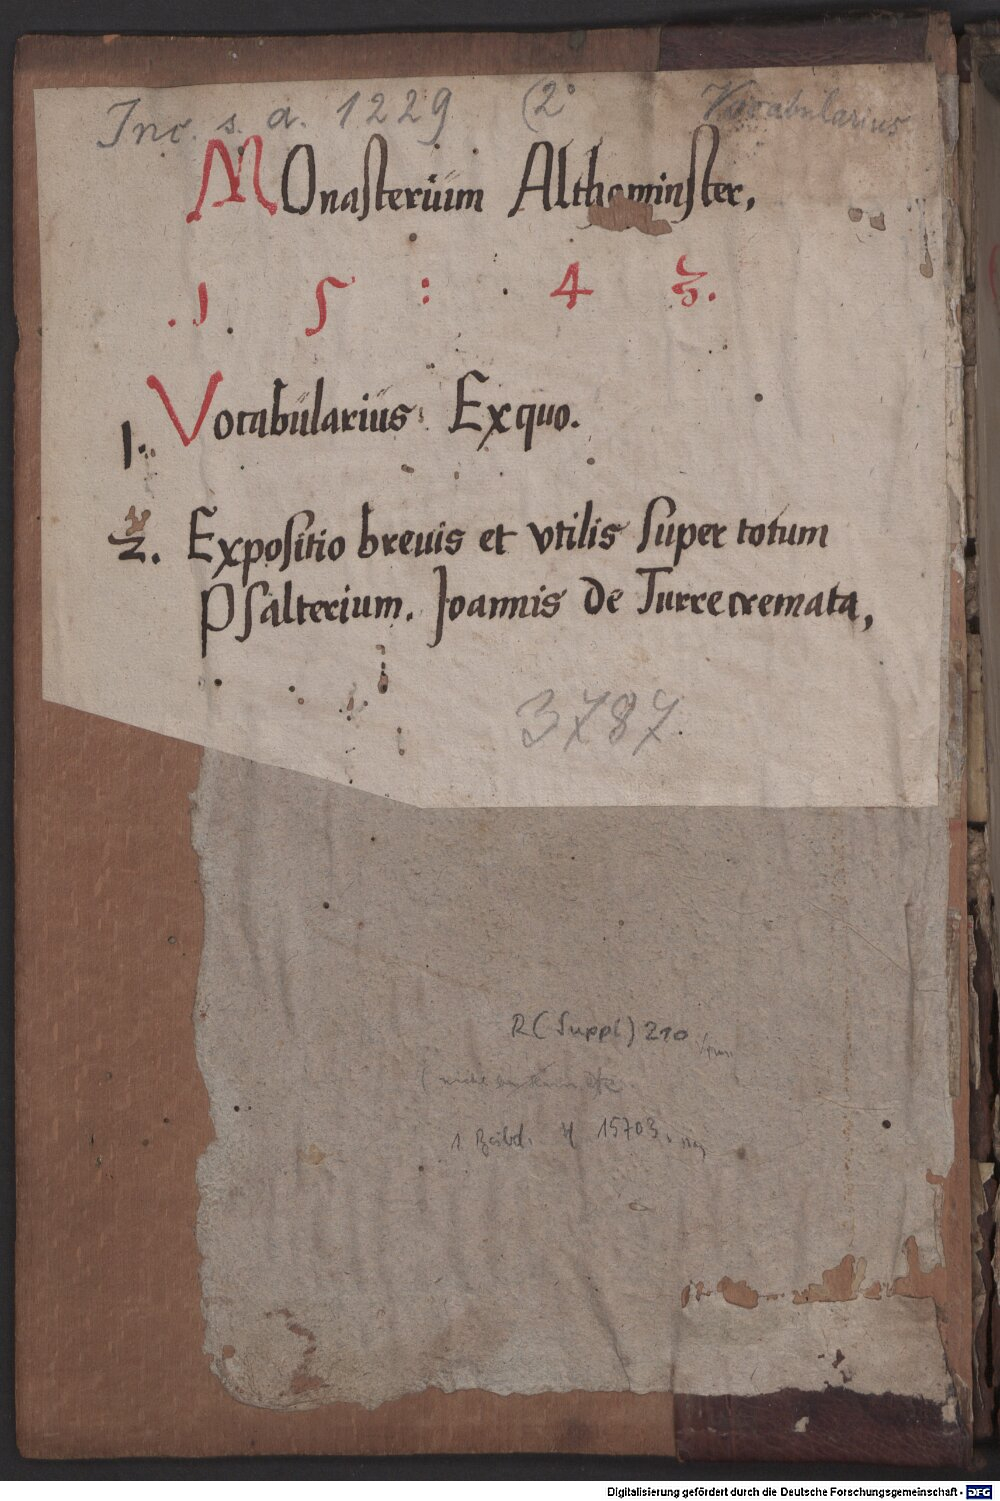 Inc. s. a. 1229 (2° Vocabularius
MOnasterium Althominster,
. 1 5 : . 4 3.
1. Vocabularius Exquo.
2. Expositio breuis et vtilis super totum
Psalterium. Joannis de Turrecremata,
3787.
R (Suppl) 210
1 Beibd. H 15703.
Digitalisierung gefördert durch die Deutsche Forschungsgemeinschaft - DFG